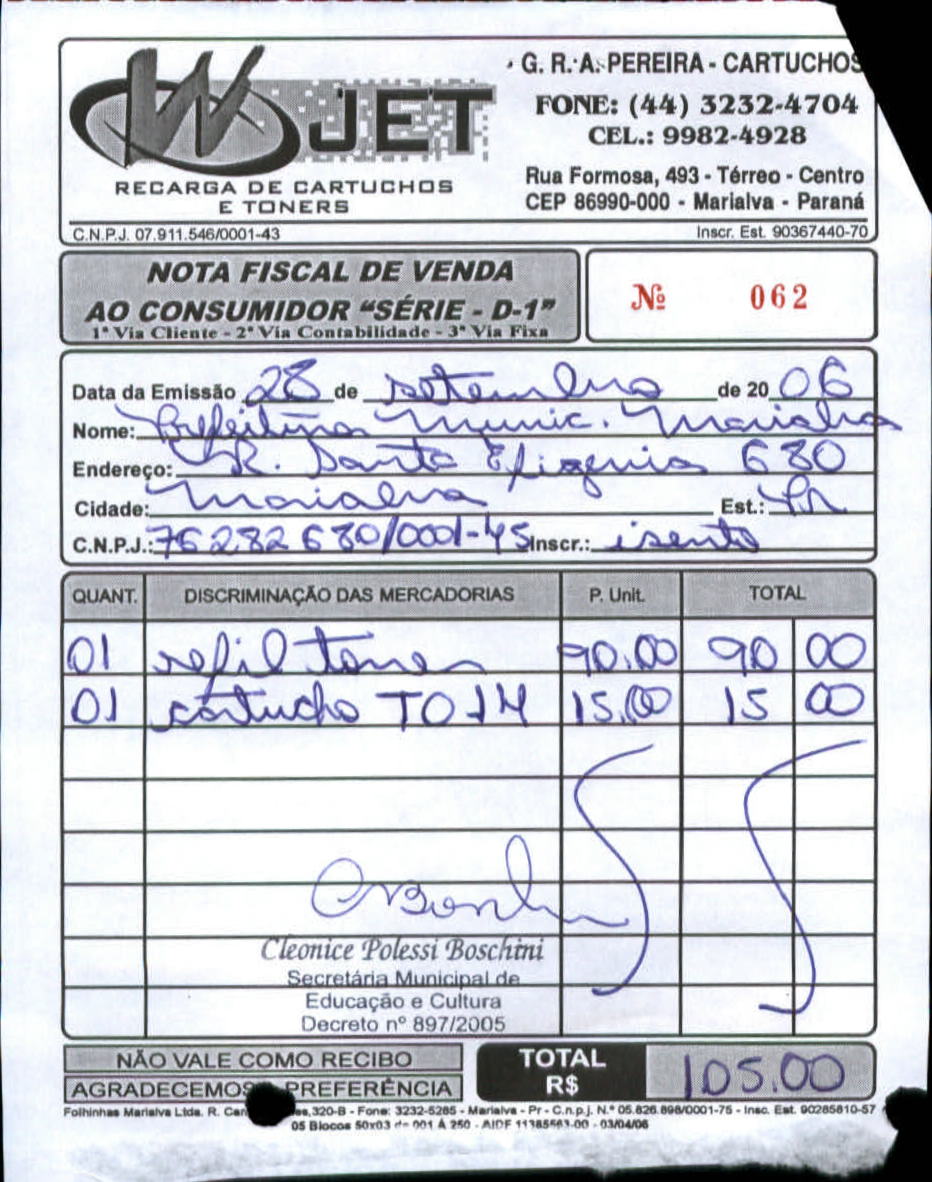 G. R. A. PEREIRA - CARTUCHOS
W JET
FONE: (44) 3232-4704
CEL.: 9982-4928
RECARGA DE CARTUCHOS
E TONERS
Rua Formosa, 493 - Térreo - Centro
CEP 86990-000 - Marialva - Paraná
C.N.P.J. 07.911.546/0001-43 Inscr. Est. 90367440-70
NOTA FISCAL DE VENDA
AO CONSUMIDOR “SÉRIE - D-1”
1ª Via Cliente - 2ª Via Contabilidade - 3ª Via Fixa
Nº 062
Data da Emissão 28 de setembro de 2006
Nome: Prefeitura Munic. Marialva
Endereço: R. Santa Efigenia 680
Cidade: Marialva Est.: PR
C.N.P.J.: 76282680/0001-45 Inscr.: isento
QUANT. DISCRIMINAÇÃO DAS MERCADORIAS P. Unit. TOTAL
01 refil toner 90,00 90 00
01 cartucho TO14 15,00 15 00
Cleonice Polessi Boschini
Secretária Municipal de
Educação e Cultura
Decreto nº 897/2005
NÃO VALE COMO RECIBO
AGRADECEMOS PREFERÊNCIA
TOTAL
R$ 105.00
Folhinhas Marialva Ltda. R. ,320-B - Fone: 3232-5285 - Marialva - Pr - C.n.p.j. N.º 05.826.898/0001-75 - Insc. Est. 90285810-57
05 Blocos 50x03 de 001 À 250 - AIDF 11385563-00 - 03/04/06